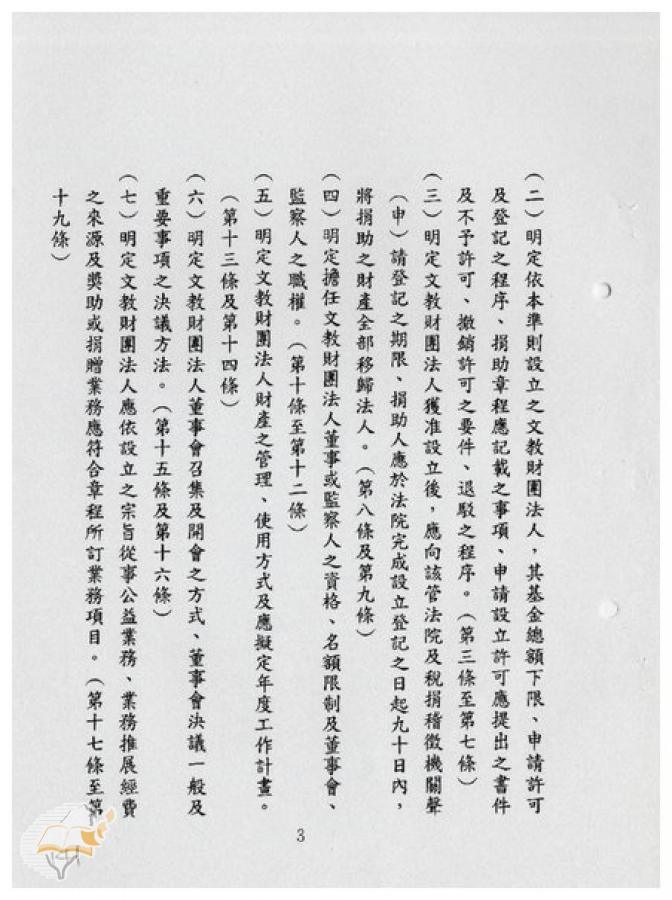 （二）明定依本準則設立之文教財團法人，其基金總額下限、申請許可
及登記之程序、捐助章程應記載之事項、申請設立許可應提出之書件
及不予許可、撤銷許可之要件、退駁之程序。（第三條至第七條）
（三）明定文教財團法人獲准設立後，應向該管法院及稅捐稽徵機關聲
（申）請登記之期限、捐助人應於法院完成設立登記之日起九十日內，
將捐助之財產全部移歸法人。（第八條及第九條）
（四）明定擔任文教財團法人董事或監察人之資格、名額限制及董事會、
監察人之職權。（第十條至第十二條）
（五）明定文教財團法人財產之管理、使用方式及應擬定年度工作計畫。
（第十三條及第十四條）
（六）明定文教財團法人董事會召集及開會之方式、董事會決議一般及
重要事項之決議方法。（第十五條及第十六條）
（七）明定文教財團法人應依設立之宗旨從事公益業務、業務推展經費
之來源及獎助或捐贈業務應符合章程所訂業務項目。（第十七條至第
十九條）
3